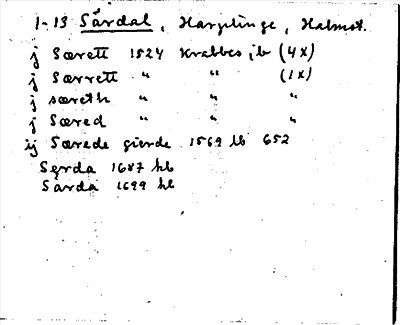 1-13 Särdal, Harplinge, Halmst.
j Særett 1524 Krabbes jb (4x)
j Særrett " " (1x)
j særeth " " "
j Særed " " "
ij Særede gierde 1569 lb 652
Serda 1687 hb
Särda 1699 hb